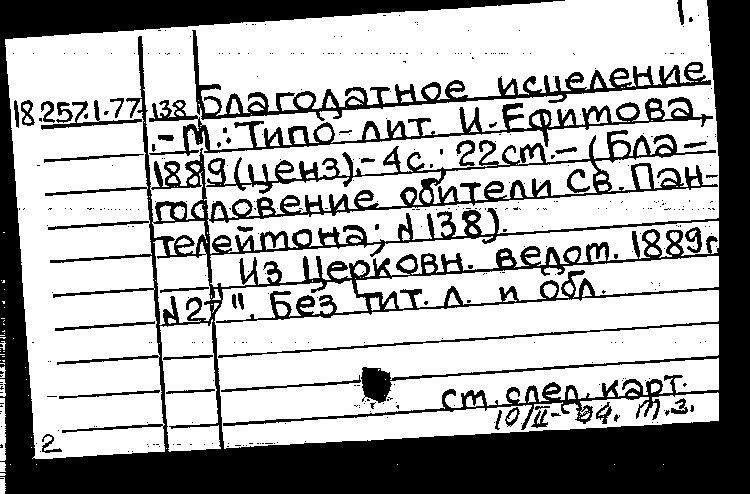 1.
18.257.1.77-138 Благодатное исцеление
.-М.: Типо-лит. И. Ефимова,
1889 (ценз).- 4с.; 22см.- (Бла-
гословение обители Св. Пан-
телеймона; №138).
"Из Церковн. ведом. 1889г.
№27". Без тит. л. и обл.
см. след. карт.
10/II- 94. М.З.
2